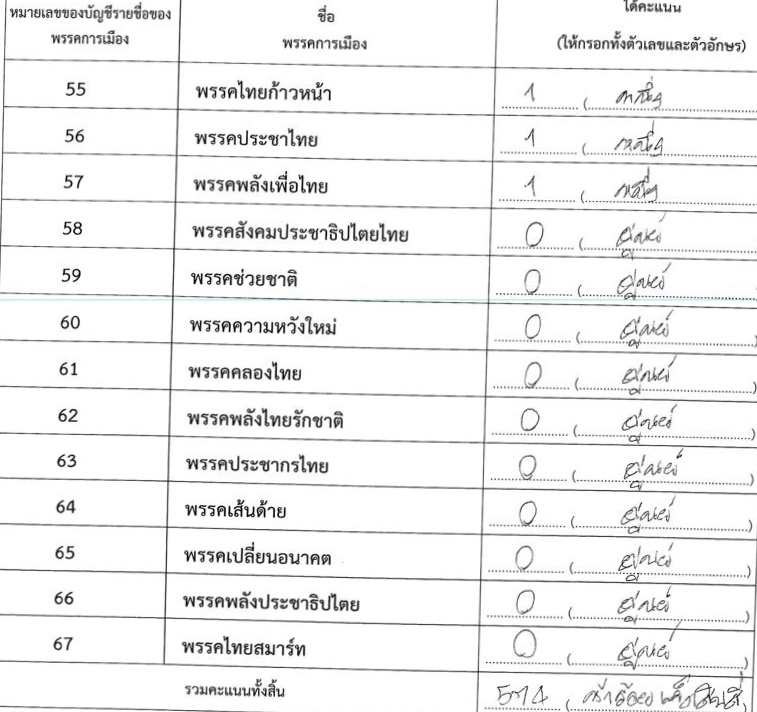 หมายเลขของบัญชีรายชื่อของ พรรคการเมือง ชื่อ พรรคการเมือง ได้คะแนน (ให้กรอกทั้งตัวเลขและตัวอักษร)
55 พรรคไทยก้าวหน้า 1 ( หนึ่ง
56 พรรคประชาไทย 1 ( หนึ่ง
57 พรรคพลังเพื่อไทย 1 ( หนึ่ง
58 พรรคสังคมประชาธิปไตยไทย 0 ( ศูนย์
59 พรรคช่วยชาติ 0 ( ศูนย์
60 พรรคความหวังใหม่ 0 ( ศูนย์ )
61 พรรคคลองไทย 0 ( ศูนย์ )
62 พรรคพลังไทยรักชาติ 0 ( ศูนย์ )
63 พรรคประชากรไทย 0 ( ศูนย์ )
64 พรรคเส้นด้าย 0 ( ศูนย์ )
65 พรรคเปลี่ยนอนาคต 0 ( ศูนย์ )
66 พรรคพลังประชาธิปไตย 0 ( ศูนย์ )
67 พรรคไทยสมาร์ท 0 ( ศูนย์ )
รวมคะแนนทั้งสิ้น 574 ( ห้าร้อยเจ็ดสิบสี่